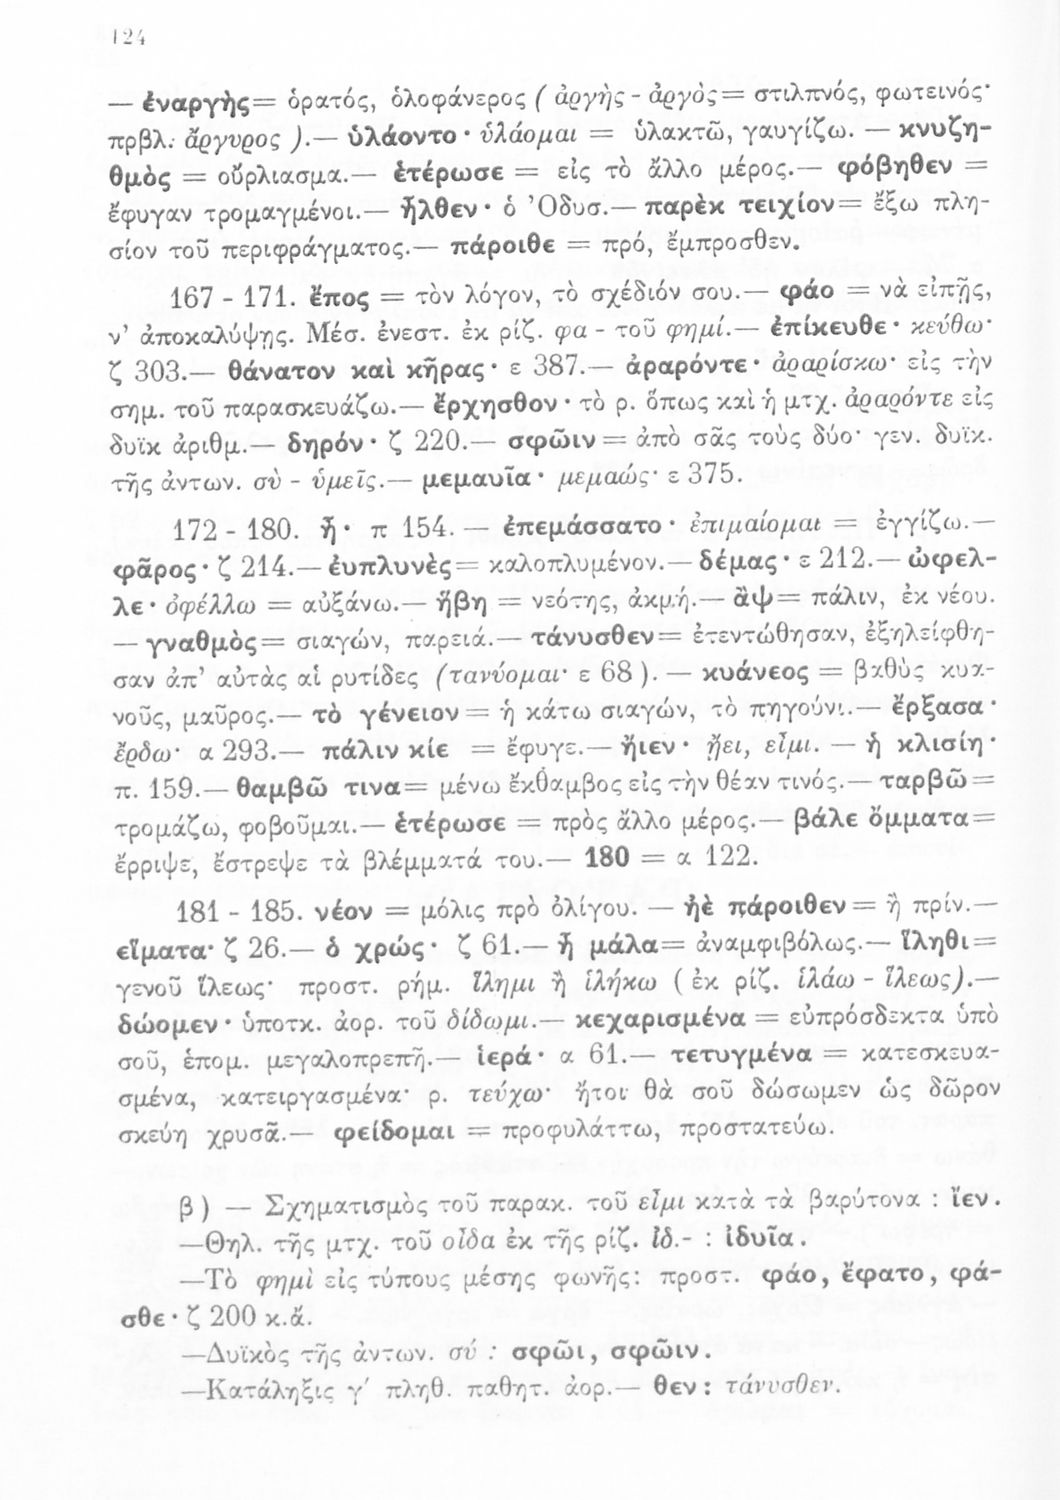 124
— ἐναργὴς= ὁρατός, ὁλοφάνερος ( ἀργὴς - ἀργὸς= στιλπνός, φωτεινός·
πρβλ.· ἄργυρος ).— ὑλάοντο· ὑλάομαι = ὑλακτῶ, γαυγίζω. — κνυζη-
θμὸς = οὔρλιασμα.— ἑτέρωσε = εἰς τὸ ἄλλο μέρος.— φόβηθεν =
ἔφυγαν τρομαγμένοι.— ἦλθεν· ὁ Ὀδυσ.— παρὲκ τειχίον= ἔξω πλη-
σίον τοῦ περιφράγματος.— πάροιθε = πρό, ἔμπροσθεν.
167 - 171. ἔπος = τὸν λόγον, τὸ σχέδιόν σου.— φάο = νὰ εἰπῇς,
ν’ ἀποκαλύψῃς. Μέσ. ἐνεστ. ἐκ ρίζ. φα - τοῦ φημί.— ἐπίκευθε· κεύθω·
ζ 303.— θάνατον καὶ κῆρας· ε 387.— ἀραρόντε· ἀραρίσκω· εἰς τὴν
σημ. τοῦ παρασκευάζω.— ἔρχησθον· τὸ ρ. ὅπως καὶ ἡ μτχ. ἀραρόντε εἰς
δυϊκ ἀριθμ.— δηρόν· ζ 220.— σφῶιν = ἀπὸ σᾶς τοὺς δύο· γεν. δυϊκ.
τῆς ἀντων. σὺ - ὑμεῖς.— μεμαυῖα· μεμαώς· ε 375.
172 - 180. ἦ· π 154. — ἐπεμάσσατο· ἐπιμαίομαι = ἐγγίζω.—
φᾶρος· ζ 214.— ἐυπλυνὲς= καλοπλυμένον.— δέμας· ε 212.— ὤφελ-
λε· ὀφέλλω = αὐξάνω.— ἥβη = νεότης, ἀκμή.— ἂψ= πάλιν, ἐκ νέου.
— γναθμὸς= σιαγών, παρειά.— τάνυσθεν= ἐτεντώθησαν, ἐξηλείφθη-
σαν ἀπ’ αὐτὰς αἱ ρυτίδες (τανύομαι· ε 68 ). — κυάνεος = βαθὺς κυα-
νοῦς, μαῦρος.— τὸ γένειον = ἡ κάτω σιαγών, τὸ πηγούνι.— ἔρξασα·
ἔρδω· α 293.— πάλιν κίε = ἔφυγε.— ἤιεν· ᾔει, εἶμι. — ἡ κλισίη·
π. 159.— θαμβῶ τινα= μένω ἔκθαμβος εἰς τὴν θέαν τινός.— ταρβῶ =
τρομάζω, φοβοῦμαι.— ἑτέρωσε = πρὸς ἄλλο μέρος.— βάλε ὄμματα=
ἔρριψε, ἔστρεψε τὰ βλέμματά του.— 180 = α 122.
181 - 185. νέον = μόλις πρὸ ὀλίγου. — ἠὲ πάροιθεν= ἢ πρίν.—
εἵματα· ζ 26.— ὁ χρώς· ζ 61.— ἦ μάλα= ἀναμφιβόλως.— ἵληθι=
γενοῦ ἵλεως· προστ. ρήμ. ἵλημι ἢ ἱλήκω ( ἐκ ρίζ. ἱλάω - ἵλεως).—
δώομεν· ὑποτκ. ἀορ. τοῦ δίδωμι.— κεχαρισμένα = εὐπρόσδεκτα ὑπὸ
σοῦ, ἑπομ. μεγαλοπρεπῆ.— ἱερά· α 61.— τετυγμένα = κατεσκευα-
σμένα, κατειργασμένα· ρ. τεύχω· ἤτοι· θὰ σοῦ δώσωμεν ὡς δῶρον
σκεύη χρυσᾶ.— φείδομαι = προφυλάττω, προστατεύω.
β ) — Σχηματισμὸς τοῦ παρακ. τοῦ εἶμι κατὰ τὰ βαρύτονα : ἵεν.
—Θηλ. τῆς μτχ. τοῦ οἶδα ἐκ τῆς ρίζ. ἰδ.- : ἰδυῖα.
—Τὸ φημὶ εἰς τύπους μέσης φωνῆς: προστ. φάο, ἔφατο, φά-
σθε· ζ 200 κ.ἄ.
—Δυϊκὸς τῆς ἀντων. σύ : σφῶι, σφῶιν.
—Κατάληξις γ´ πληθ. παθητ. ἀορ.— θεν: τάνυσθεν.